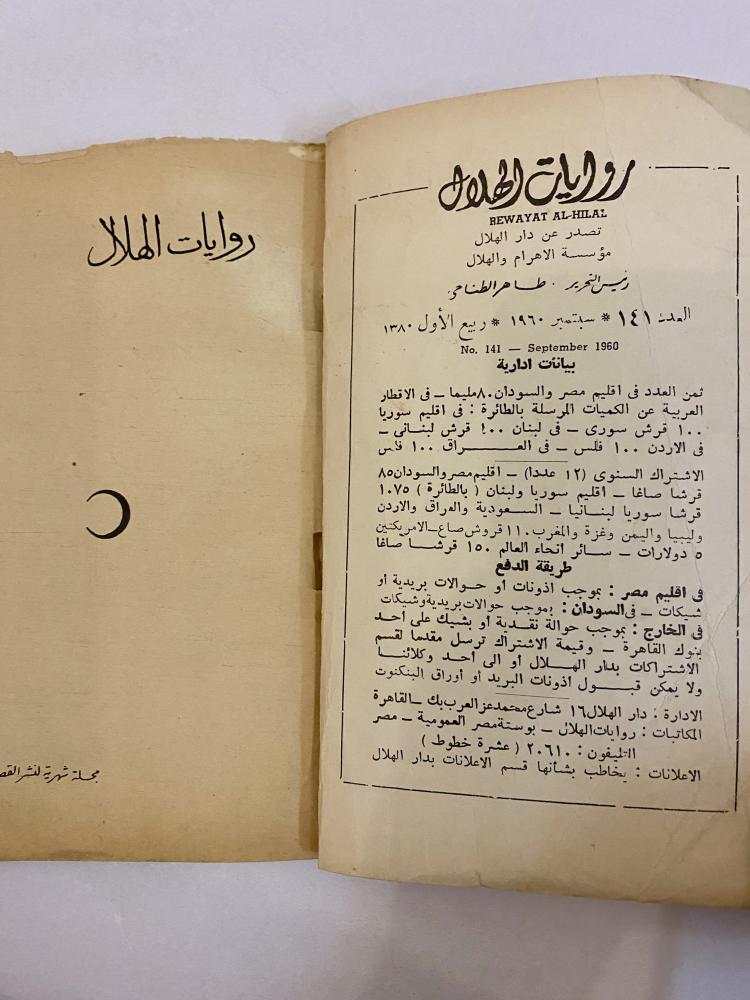 روايات الهلال
REWAYAT AL-HILAL
تصدر عن دار الهلال
مؤسسة الاهرام والهلال
رئيس التحرير . طاهر الطناحي
العدد ١٤١ * سبتمبر ١٩٦٠ * ربيع الأول ١٣٨٠
No. 141 — September 1960
بيانات ادارية
ثمن العدد فى اقليم مصر والسودان ٨٠ مليما – فى الاقطار
العربية عن الكميات المرسلة بالطائرة : فى اقليم سوريا
١٠٠ قرش سورى – فى لبنان ١٠٠ قرش لبنانى –
فى الاردن ١٠٠ فلس – فى العراق ١٠٠ فلس
الاشتراك السنوى (١٢ عددا) – اقليم مصر والسودان ٨٥
قرشا صاغا – اقليم سوريا ولبنان ( بالطائرة ) ١٠٧٥
قرشا سوريا لبنانيا – السعودية والعراق والاردن
وليبيا واليمن وغزة والمغرب ١١٠ قروش صاغ – الامريكتين
٥ دولارات – سائر انحاء العالم ١٥٠ قرشا صاغا
طريقة الدفع
فى اقليم مصر : بموجب اذونات أو حوالات بريدية أو
شيكات – فى السودان : بموجب حوالات بريدية وشيكات
فى الخارج : بموجب حوالة نقدية أو بشيك على أحد
بنوك القاهرة – وقيمة الاشتراك ترسل مقدما لقسم
الاشتراكات بدار الهلال أو الى أحد وكلائنا
ولا يمكن قبول اذونات البريد أو أوراق البنكنوت
الادارة : دار الهلال ١٦ شارع محمد عز العرب بك – القاهرة
المكاتبات : روايات الهلال – بوستة مصر العمومية – مصر
التليفون : ٢٠٦١٠ ( عشرة خطوط )
الاعلانات : يخاطب بشأنها قسم الاعلانات بدار الهلال
روايات الهلال
مجلة شهرية لنشر القص